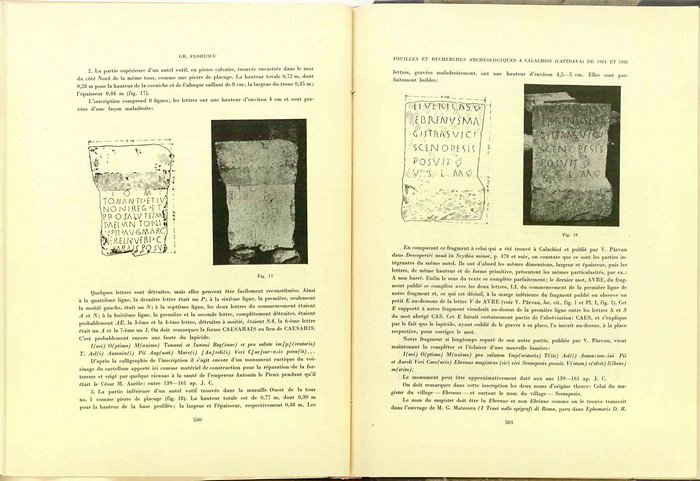 GR. FLORESCU
2. La partie supérieure d'un autel votif, en pierre calcaire, trouvée encastrée dans le mur
du côté Nord de la même tour, comme une pierre de placage. La hauteur totale 0,72 m, dont
0,28 m pour la hauteur de la corniche et de l'abaque saillant de 8 cm; la largeur du tronc 0,45 m;
l'épaisseur 0,44 m (fig. 17).
L'inscription comprend 8 lignes; les lettres ont une hauteur d'environ 4 cm et sont gra-
vées d'une façon maladroite:
I O M
TONANTI·ETIV
NONIREG·ET
PROSALVTEIM
Fig. 17
Quelques lettres sont détruites, mais elles peuvent être facilement reconstituées. Ainsi
à la quatrième ligne, la dernière lettre était un P; à la sixième ligne, la première, seulement
la moitié gauche, était un N; à la septième ligne, les deux lettres du commencement étaient
A et N; à la huitième ligne, la première et la seconde lettre, complètement détruites, étaient
probablement AE, la 3-ème et la 4-ème lettre, détruites à moitié, étaient SA, la 6-ème lettre
était un A et la 7-ème un I. On doit remarquer la forme CAESARAIS au lieu de CAESARIS.
C'est probablement encore une faute du lapicide.
I(ovi) O(ptimo) M(aximo) Tonanti et Iunoni Reg(inae) et pro salute im[p](eratoris)
T. Ael(i) Antoni[n]i Pii Aug(usti) Marci
D'après la calligraphie de l'inscription il s'agit encore d'un monument rustique du voi-
sinage du castellum apporté ici comme matériel de construction pour la réparation de la for-
teresse et érigé par quelque réunis à la santé de l'empereur Antonin le Pieux pendant qu'il
était le César M. Aurèle: entre 139—161 ap. J. C.
3. La partie inférieure d'un autel votif trouvée dans la muraille Ouest de la tour
no. 1 comme pierre de placage (fig. 18). La hauteur totale est de 0,77 m, dont 0,30 m
pour la hauteur de la base profilée; la largeur et l'épaisseur, respectivement 0,48 m. Les
500
FOUILLES ET RECHERCHES ARCHÉOLOGIQUES A CALACHIOI (CAPIDAVA) DE 1924 ET 1926
lettres, gravées maladroitement, ont une hauteur d'environ 4,5—5 cm. Elles sont par-
faitement lisibles:
EBRENVSMA
GISTRASVICI
SCENOPESIS
POSVIT
V S L M
EBRENVSMA
GISTRASVICI
SCENOPESIS
POSVIT
V S L M
Fig. 18
En comparant ce fragment à celui qui a été trouvé à Calachioi et publié par V. Pârvan
dans Descoperiri nouă în Scythia minor, p. 470 et suiv, on constate que ce sont les parties in-
tégrantes du même autel. Ils ont d'abord les mêmes dimensions, largeur et épaisseur, puis les
lettres, de même hauteur et de forme primitive, présentent les mêmes particularités, par ex.:
A non barré. Enfin le sens du texte se complète parfaitement; le dernier mot, AVRE, du frag-
ment publié se complète avec les deux lettres, LI, du commencement de la première ligne de
notre fragment, et, ce qui est décisif, à la marge inférieure du fragment publié on observe un
petit E au-dessous de la lettre V de AVRE (voir V. Pârvan, loc. cit., fig. 1 et Pl. I, fig. 1). Cet
E rapporté à notre fragment viendrait au-dessus de la première ligne entre les lettres A et S
du mot abrégé CAS. Cet E faisait certainement partie de l'abréviation: CAES, et s'explique
par le fait que le lapicide, ayant oublié de le graver à sa place, l'a inscrit au-dessus, à la place
respective, pour corriger le mot.
Notre fragment si longtemps separé de son autre partie, publiée par V. Pârvan, vient
maintenant le compléter et l'éclaire d'une nouvelle lumière:
I(ovi) O(ptimo) M(aximo) pro salutem Imp(eratoris) T(iti) Ael(i) Anton
et Aureli Veri Caes(aris) Ebrenus magistras (sic) vici Scenopesis posuit. V(otum) s(olvit) l(ibens)
m(erito).
Le monument peut être approximativement daté aux ans 139—161 ap. J. C.
On doit remarquer dans cette inscription deux noms d'origine thrace: Celui du ma-
gister du village — Ebrenus — et surtout le nom du village — Scenopesis.
Le nom du magister doit être lu Ebrenus et non Ebeinus comme on le trouve transcrit
dans l'ouvrage de M. G. Mateescu (I Traci nelle epigrafi di Roma, paru dans Ephemeris D. R.
501